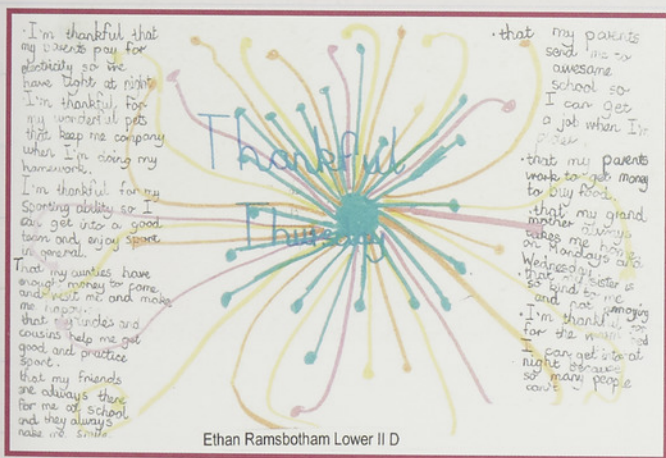 · I'm thankful that
my parents pay for
electricity so we
have light at night
· I'm thankful for
my wonderful pets
that keep me company
when I'm doing my
homework.
I'm thankful for my
Sporting ability so I
can get into a good
team and enjoy sport
in general.
That my aunties have
enough money to come
and visit me and make
me happy.
that my uncles and
cousins help me get
good and practice
sport.
that my friends
are always there
for me at school
and they always
make me smile
Thankful
Thursday
· that my parents
send me to
awesome
school so
I can get
a job when I'm
· that my parents
work to get money
to buy food.
· that my grand
mother always
takes me home
on Mondays and
Wednesday.
· that my sister is
so kind to me
and not annoying
· I'm thankful
for the warm bed
I can get into at
night because
so many people
can't
Ethan Ramsbotham Lower II D